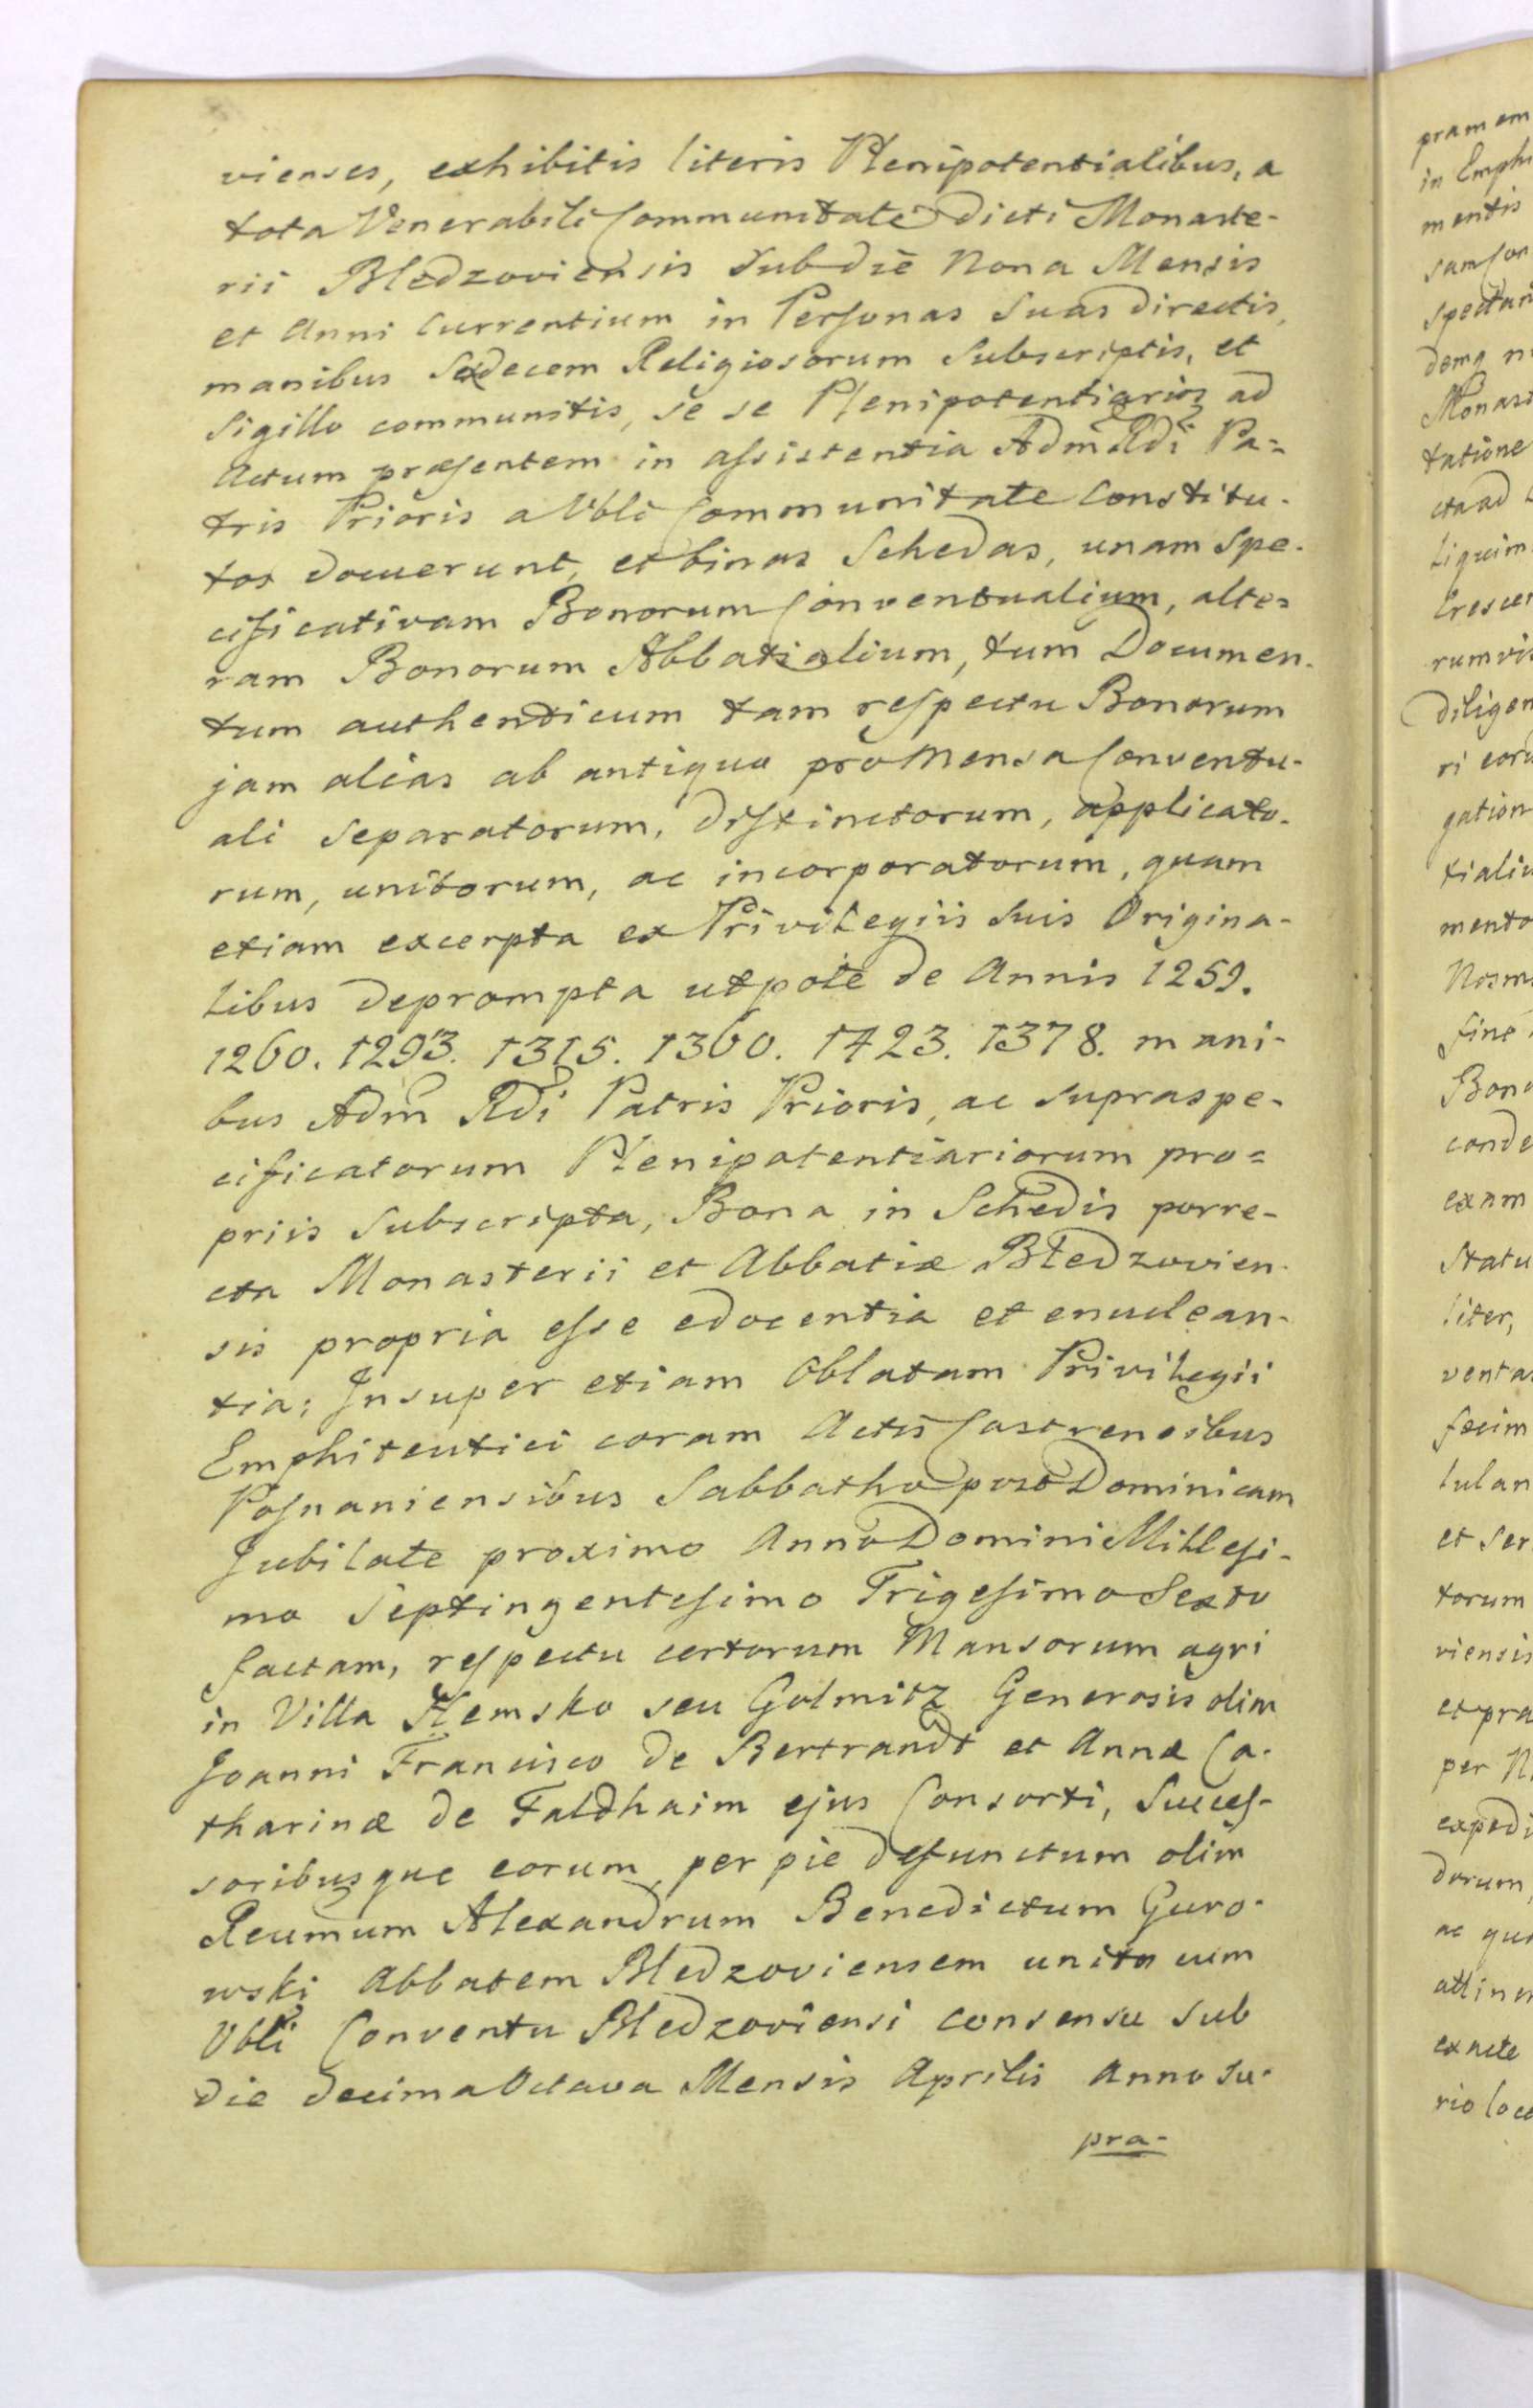 vienses, exhibitis literis Plenipotentialibus, a
tota Venerabili Communitate dicti Monaste-
rii Bledzoviensis sub die Nona Mensis
et Anni Currentium in Personas suas directis,
manibus Sedecem Religiosorum subscriptis, et
Sigillo communitis, se se Plenipotentiarios ad
Actum præsentem in assistentia Adm Rdi Pa=
tris Prioris a Vbli Communitate Constitu-
tos docuerunt, et binas Schedas, unam Spe-
cificativam Bonorum Conventualium, alte=
ram Bonorum Abbatialium, tum Documen-
tum authenticum tam respectu Bonorum
jam alias ab antiquo pro Mensa Conventu-
ali separatorum, distinctorum, applicato-
rum, unitorum, ac incorporatorum, quam
etiam excerpta ex Privilegiis suis Origina-
libus deprompta utpote de Annis 1259.
1260. 1293. 1315. 1360. 1423. 1378. mani-
bus Adm Rdi Patris Prioris, ac supraspe-
cificatorum Plenipotentiariorum pro=
priis subscripta, Bona in Schedis porre-
cta Monasterii et Abbatiæ Bledzovien-
sis propria esse edocentia et enuclean-
tia; Insuper etiam Oblatam Privilegii
Emphiteutici coram Actis Castrensibus
Posnaniensibus Sabbatho post Dominicam
Jubilate proximo Anno Domini Millesi-
mo Septingentesimo Trigesimo Sexto
factam, respectu certorum Mansorum agri
in Villa Chemsko seu Golmitz Generosis olim
Joanni Francisco de Bertrandt et Annæ Ca-
tharinæ de Faldhaim ejus Consorti, Succes-
soribusque eorum per pie defunctum olim
Reumum Alexandrum Benedictum Guro-
wski Abbatem Bledzoviensem unito cum
Vbli Conventu Bledzoviensi consensu sub
die decima Octava Mensis Aprilis Anno su-
pra-
pram em
in Emph
mentis
sam Con
spectan
demq n
Monast
tatione
cta ad
liquim
Crescen
rumvis
diligen
ri eoru
gation
tialiu
mento
Nosm
fine
Bono
conde
exam
Statu
liter,
ventas
fecim
lulan
et ser
torum
viensis
et pra
per N
expedi
dorum,
ac qua
attinen
exacte
rio loco